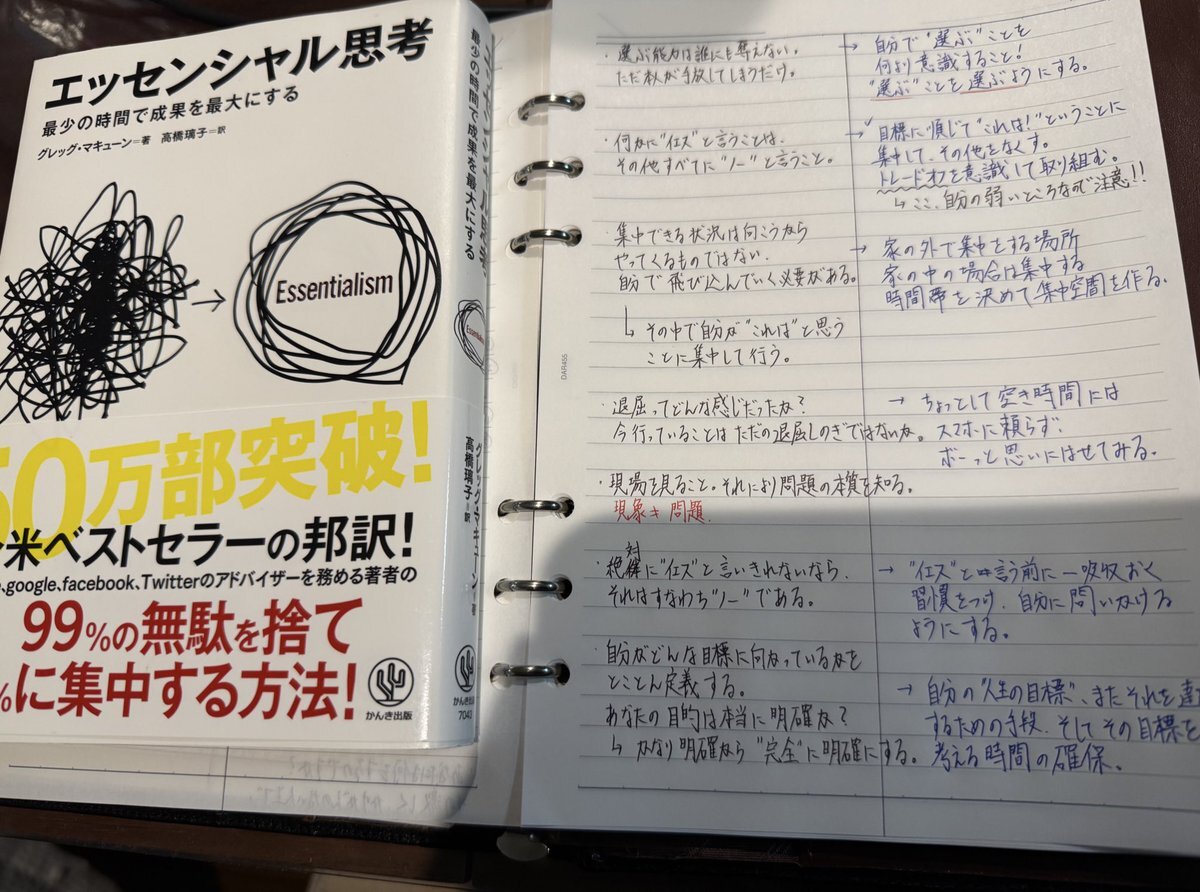 エッセンシャル思考
最少の時間で成果を最大にする
グレッグ・マキューン=著 高橋璃子=訳
Essentialism
0万部突破!
米ベストセラーの邦訳!
、google、facebook、Twitterのアドバイザーを務める著者の
99%の無駄を捨て
%に集中する方法!
かんき出版
最少の時間で成果を最大にする
グレッグ・マキューン=著
高橋璃子=訳
かんき出版
7043
DAR455
・選ぶ能力は誰にも奪えない。
ただ本人が手放してしまうだけ。
→ 自分で"選ぶ"ことを
何より意識すること!
"選ぶ"ことを選ぶようにする。
・何かに"イエズ"と言うことは、
その他すべてに"ノー"と言うこと。
→ 目標に順じて"これは!"ということに
集中して、その他をなくす。
トレードオフを意識して取り組む。
↳ ここ、自分の弱いところなので注意!!
・集中できる状況は向こうから
やってくるものではない。
自分で飛び込んでいく必要がある。
↳ その中で自分が"これは"と思う
ことに集中して行う。
→ 家の外で集中をする場所
家の中の場合は集中する
時間帯を決めて集中空間を作る。
・退屈ってどんな感じだったか?
今行っていることはただの退屈しのぎではないか。
→ ちょっとして空き時間には
スマホに頼らず、
ボーっと思いにはせてみる。
・現場を見ること。それにより問題の本質を知る。
現象≠問題
・絶対に"イエズ"と言いきれないなら、
それはすなわち"ノー"である。
→ "イエズ"と言う前に一呼吸おく
習慣をつけ、自分に問いかける
ようにする。
・自分がどんな目標に向かっているかを
とことん定義する。
あなたの目的は本当に明確か?
↳ かなり明確なら"完全"に明確にする。
→ 自分の"人生の目標"、またそれを達
するための手段、そしてその目標を
考える時間の確保。